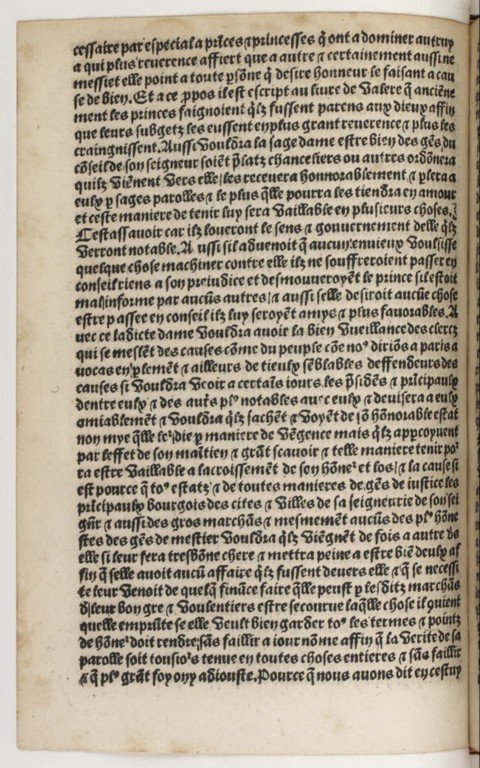 cessaire par especial a prĩces ⁊ princesses q̃ ont a dominer autruy
a qui plus reuerence affiert que a autre ⁊ certainement aussi ne
messiet elle point a toute ꝑsõne q̃ desire honneur le faisant a cau
se de bien. Et a ce ꝓpos il est escript au liure de Valere q̃ anciẽne
ment les princes faignoient q̃lz fussent parens aux dieux affin
que leurs subgetz les eussent en plus grant reuerence ⁊ plus les
craingnissent. Aussi Vouldra la sage dame estre bien des gẽs du
cõseil de son seigneur soiẽt p̃latz chanceliers ou autres ordõnera
quilz Viẽnent Vers elle / les receuera honnorablement ⁊ ꝑlera a
eulx ꝑ sages parolles ⁊ le plus q̃lle pourra les tiendra en amour
et ceste maniere de tenir luy sera Vaillable en plusieurs choses.
Cestassauoir car ilz loueront le sens ⁊ gouuernement delle q̃lz
Verront notable. A ussi sil aduenoit q̃ aucun enuieux Voulsisse
quelque chose machiner contre elle ilz ne souffreroient passer en
conseil riens a son preiudice et desmouueroyẽt le prince sil estoit
mal informe par aucũs autres / ⁊ aussi selle desiroit aucũe chose
estre passee en conseil ilz luy seroyẽt amys ⁊ plus fauorables. A
uec ce ladicte dame Vouldra auoir la bien Vueillance des clercz
qui se meslẽt des causes cõme du peuple cõe noꝰ diriõs a paris a
uocas en ꝑlemẽt ⁊ ailleurs de tieulx sẽblables deffendeurs des
causes si Vouldra Veoir a certaĩs iours les p̃sidẽs ⁊ prĩcipaulx
dentre eulx ⁊ des autr̃s plꝰ notables auec eulx ⁊ deuisera a eulx
amiablemẽt ⁊ Vouldra q̃lz sachẽt ⁊ Voyẽt de sõ hõnorable estat
non mye q̃lle le die ꝑ maniere de Vẽgence mais q̃lz appcoyuent
par leffet de son maĩtien ⁊ grãt scauoir ⁊ telle maniere tenir poꝛ
ra estre Vaillable a lacroissemẽt de son hõneꝛ et los / ⁊ la cause si
est pource q̃ toꝰ estatz ⁊ de toutes manieres de gẽs de iustice les
prĩcipaulx bourgois des cites ⁊ Villes de sa seigneurie de son sei
gñr ⁊ aussi des gros marchãs ⁊ mesmemẽt aucũs des plꝰ hõne
stes des gẽs de mestier Vouldra q̃lz Viẽgnẽt de fois a autre Vs
elle si leur fera tresbõne chere ⁊ mettra peine a estre biẽ deulx af
fin q̃ selle auoit aucũ affaire q̃lz fussent deuers elle ⁊ q̃ se necessi
te leur Venoit de quelq̃ finãce faire q̃lle peust ꝑ lesditz marchãs
de leur bon gre ⁊ Voulentiers estre secourue laq̃lle chose il quient
quelle emprũte se elle Veult bien garder toꝰ les termes ⁊ pointz
de hõneꝛ doit rendre sãs faillir a iour nõme affin q̃ la Verite de sa
parolle soit tousioꝛs tenue en toutes choses entieres ⁊ sãs faillir
⁊ q̃ plꝰ grãt foy on y adiouste. Pource q̃ nous auons dit en cestuy